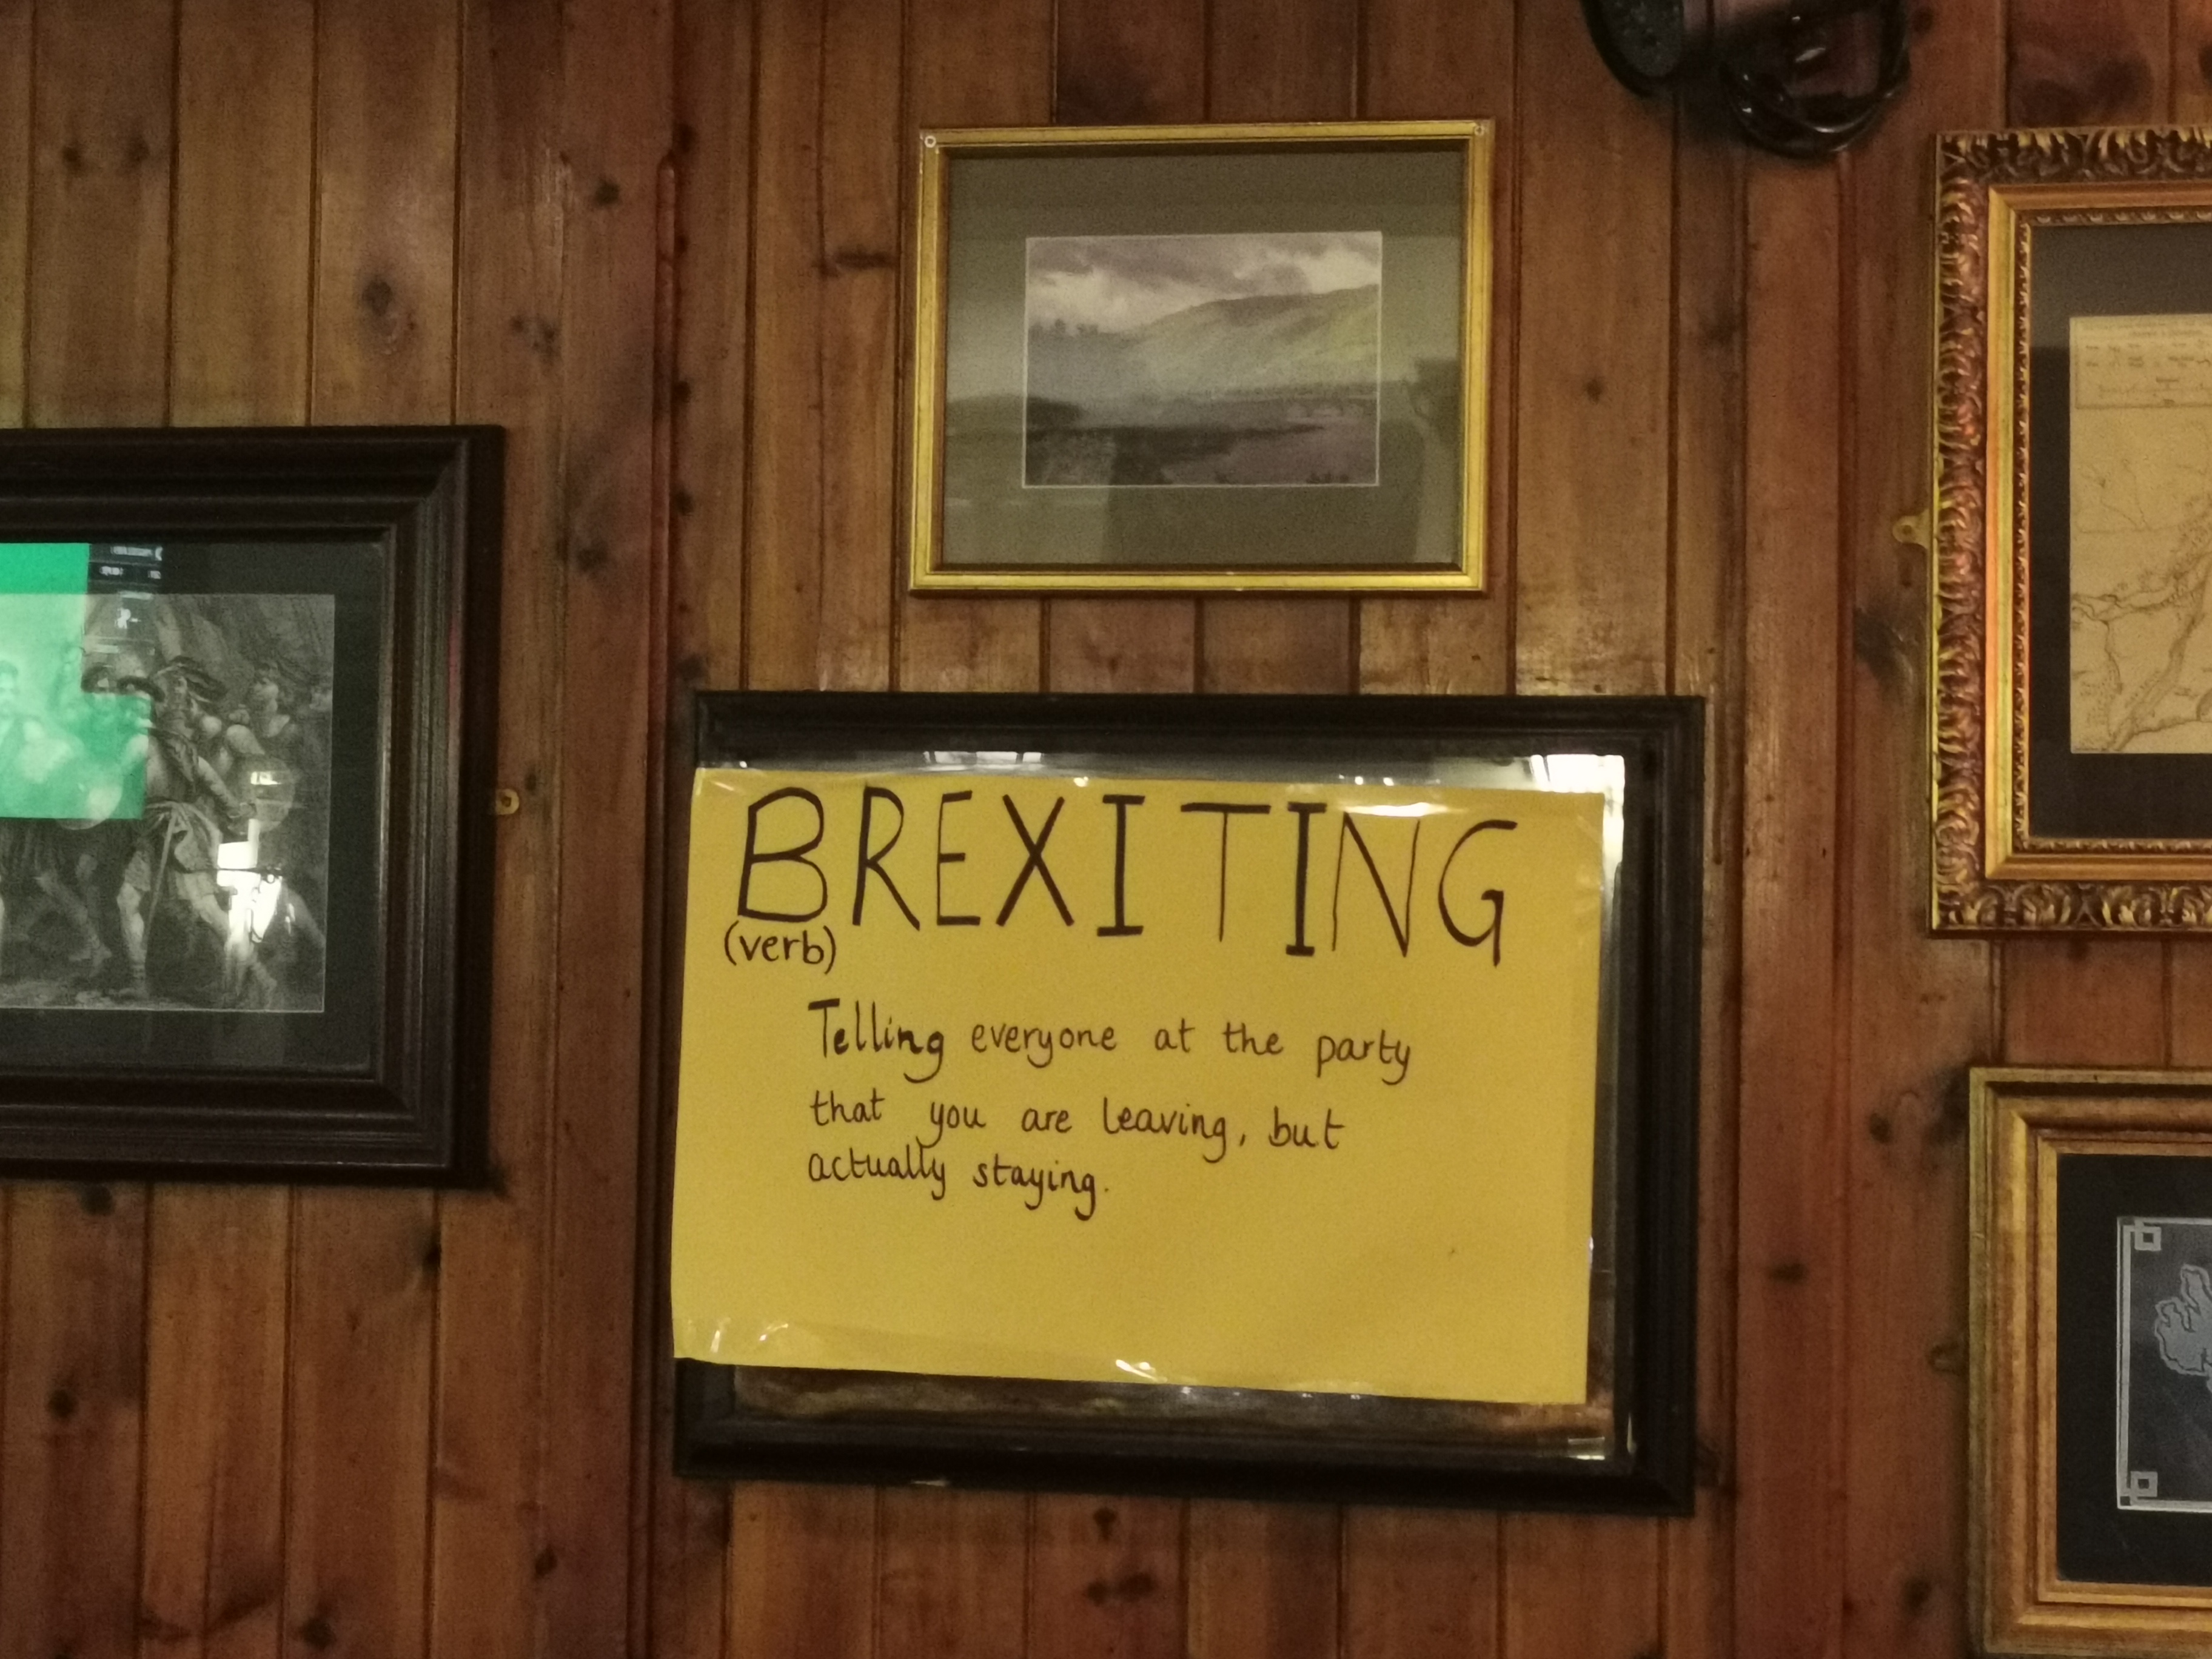 BREXITING
(verb)
Telling everyone at the party
that you are leaving, but
actually staying.